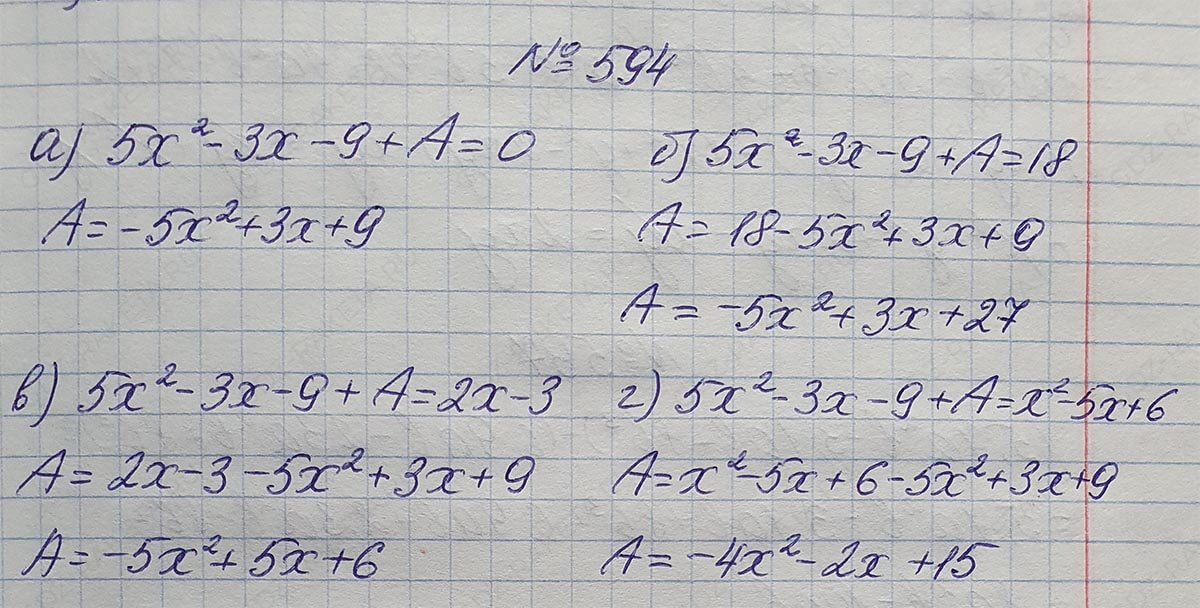 № 594
а) 5x² - 3x - 9 + A = 0
A = -5x² + 3x + 9
б) 5x² - 3x - 9 + A = 18
A = 18 - 5x² + 3x + 9
A = -5x² + 3x + 27
в) 5x² - 3x - 9 + A = 2x - 3
A = 2x - 3 - 5x² + 3x + 9
A = -5x² + 5x + 6
г) 5x² - 3x - 9 + A = x² - 5x + 6
A = x² - 5x + 6 - 5x² + 3x + 9
A = -4x² - 2x + 15